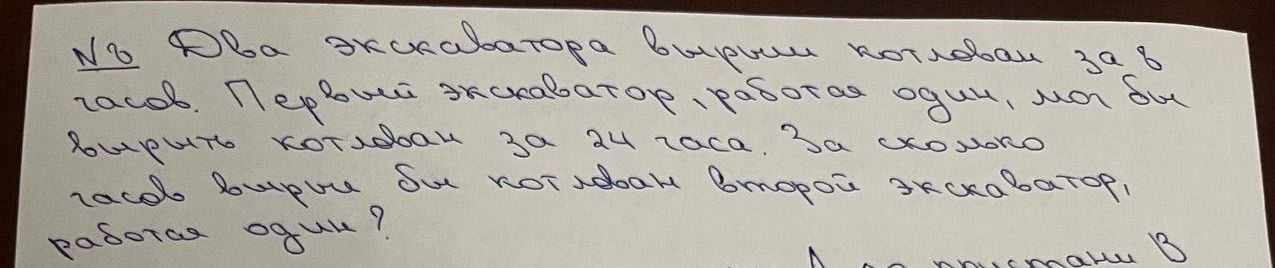 №8 Два экскаватора вырыли котлован за 8
часов. Первый экскаватор, работая один, мог бы
вырыть котлован за 24 часа. За сколько
часов вырыл бы котлован второй экскаватор,
работая один?
пристани В